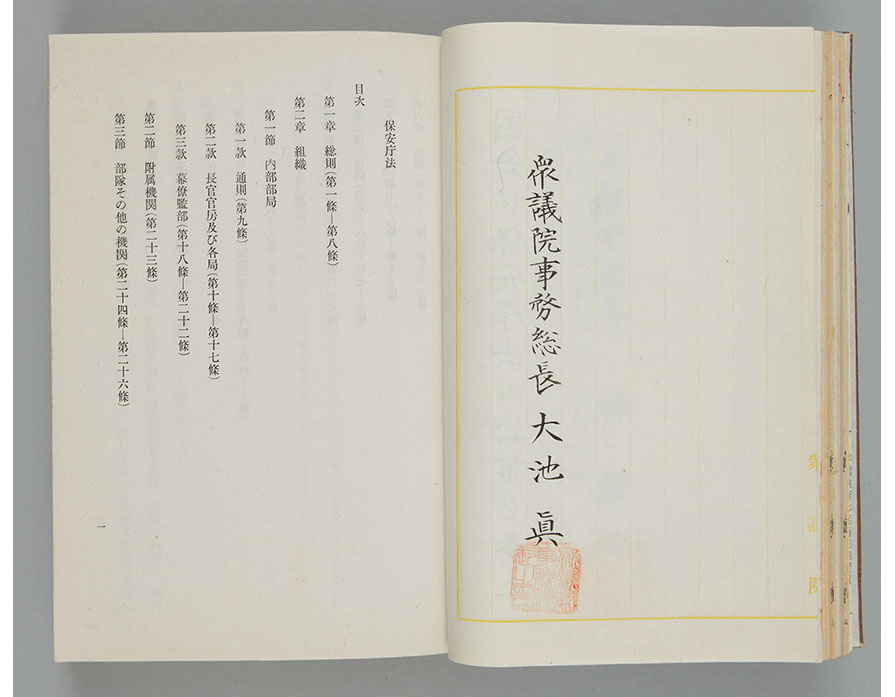 衆議院事務総長 大池 眞
保安庁法
目次
第一章 総則(第一條―第八條)
第二章 組織
第一節 内部部局
第一款 通則(第九條)
第二款 長官官房及び各局(第十條―第十七條)
第三款 幕僚監部(第十八條―第二十二條)
第二節 附属機関(第二十三條)
第三節 部隊その他の機関(第二十四條―第二十六條)
一